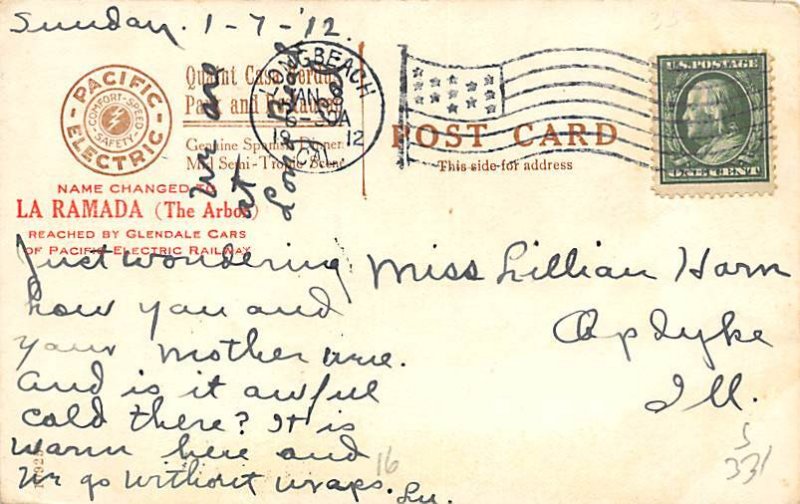 Sunday. 1-7-'12.
PACIFIC ELECTRIC
COMFORT-SPEED SAFETY
Quaint Casa Verdugo
Park and Restaurant
Genuine Spanish Dinner
Mid Semi-Tropic Scene
NAME CHANGED TO
LA RAMADA (The Arbor)
REACHED BY GLENDALE CARS
OF PACIFIC ELECTRIC RAILWAY
We are
at
Long Beach
LONG BEACH
JAN
6-30A
1912
CAL
POST CARD
This side for address
U.S. POSTAGE
ONE CENT
Just wondering
how you and
your mother are.
And is it awful
cold there? It is
warm here and
we go without wraps.
Lu.
Miss Lillian Harn
Opdyke
Ill.
16
5
331